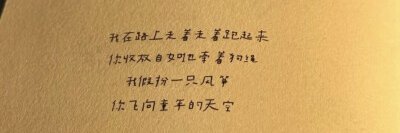 我在路上走着走着跑起来
你收放自如地牵着狗绳
我假扮一只风筝
你飞向童年的天空